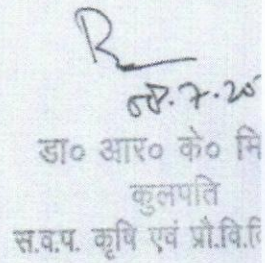 08.7.20
डा० आर० के० मि
कुलपति
स.व.प. कृषि एवं प्रौ.वि.वि